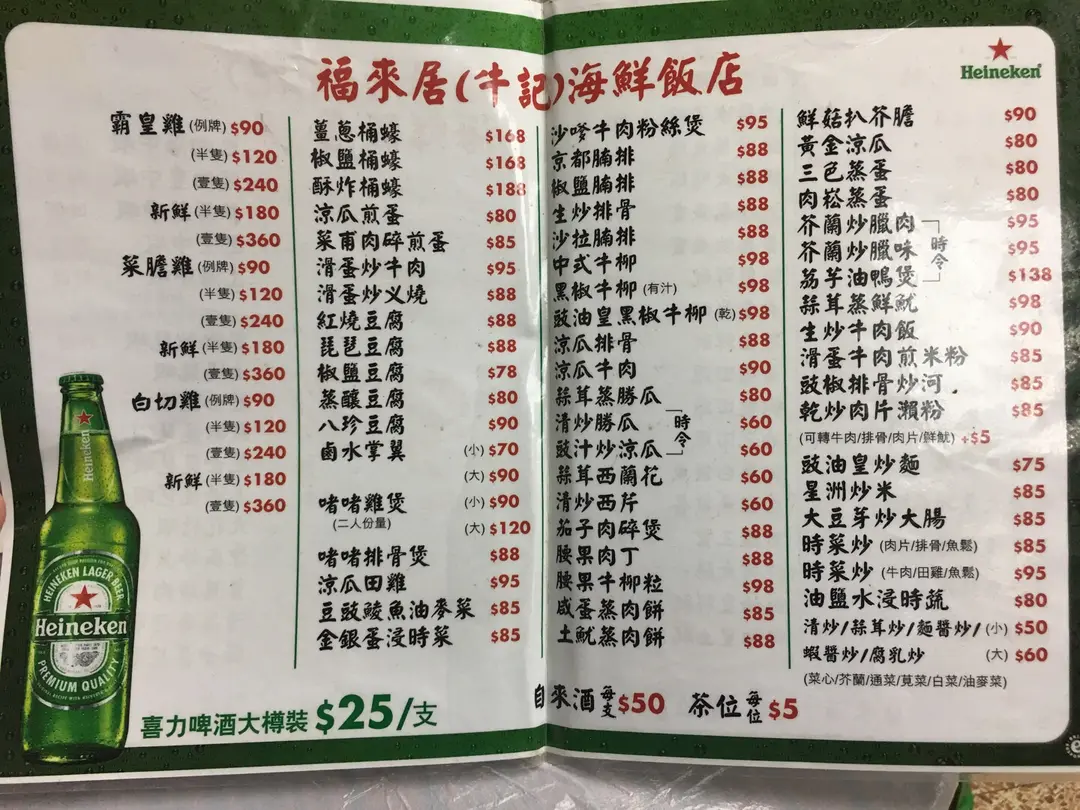 福來居(牛記)海鮮飯店
Heineken
霸皇雞(例牌) $90
(半隻) $120
(壹隻) $240
新鮮(半隻) $180
(壹隻) $360
菜膽雞(例牌) $90
(半隻) $120
(壹隻) $240
新鮮(半隻) $180
(壹隻) $360
白切雞(例牌) $90
(半隻) $120
(壹隻) $240
新鮮(半隻) $180
(壹隻) $360
薑蔥桶蠔 $168
椒鹽桶蠔 $168
酥炸桶蠔 $188
涼瓜煎蛋 $80
菜甫肉碎煎蛋 $85
滑蛋炒牛肉 $95
滑蛋炒义燒 $88
紅燒豆腐 $88
琵琶豆腐 $88
椒鹽豆腐 $78
蒸釀豆腐 $80
八珍豆腐 $90
鹵水掌翼 (小) $70
(大) $90
啫啫雞煲 (小) $90
(二人份量) (大) $120
啫啫排骨煲 $88
涼瓜田雞 $95
豆豉鯪魚油麥菜 $85
金銀蛋浸時菜 $85
沙嗲牛肉粉絲煲 $95
京都腩排 $88
椒鹽腩排 $88
生炒排骨 $88
沙拉腩排 $88
中式牛柳 $98
黑椒牛柳(有汁) $98
豉油皇黑椒牛柳(乾) $98
涼瓜排骨 $88
涼瓜牛肉 $90
蒜茸蒸勝瓜 $80
清炒勝瓜 $60
時令
豉汁炒涼瓜 $60
蒜茸西蘭花 $60
清炒西芹 $60
茄子肉碎煲 $88
腰果肉丁 $88
腰果牛柳粒 $98
咸蛋蒸肉餅 $85
土魷蒸肉餅 $88
鮮菇扒芥膽 $90
黃金涼瓜 $80
三色蒸蛋 $80
肉崧蒸蛋 $80
芥蘭炒臘肉 $95
芥蘭炒臘味 $95
時令
荔芋油鴨煲 $138
蒜茸蒸鮮魷 $98
生炒牛肉飯 $90
滑蛋牛肉煎米粉 $85
豉椒排骨炒河 $85
乾炒肉片瀨粉 $85
(可轉牛肉/排骨/肉片/鮮魷) +$5
豉油皇炒麵 $75
星洲炒米 $85
大豆芽炒大腸 $85
時菜炒(肉片/排骨/魚鬆) $85
時菜炒(牛肉/田雞/魚鬆) $95
油鹽水浸時蔬 $80
清炒/蒜茸炒/麵醬炒/(小) $50
蝦醬炒/腐乳炒 (大) $60
(菜心/芥蘭/通菜/莧菜/白菜/油麥菜)
喜力啤酒大樽裝 $25/支
自來酒每支$50
茶位每位$5
Heineken
HEINEKEN LAGER BEER
Heineken
PREMIUM QUALITY